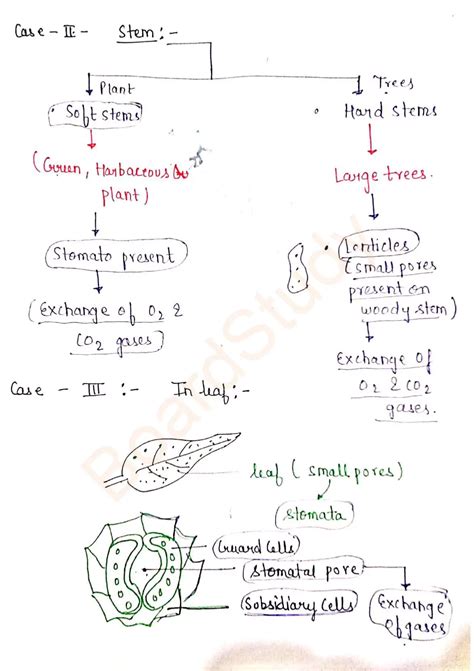 Case - II - Stem:-
Plant
Trees
Soft stems
Hard Stems
(Green, Harbaceous
plant)
Large trees.
Stomato present
Lenticles
(small pores
present on
woody stem)
(Exchange of O2 &
CO2 gases)
Exchange of
O2 & CO2
gases.
Case - III :- In leaf:-
leaf (small pores)
Stomata
Guard Cells
Stomatal pore
Subsidiary Cells
Exchange
of gases
BoardStudy